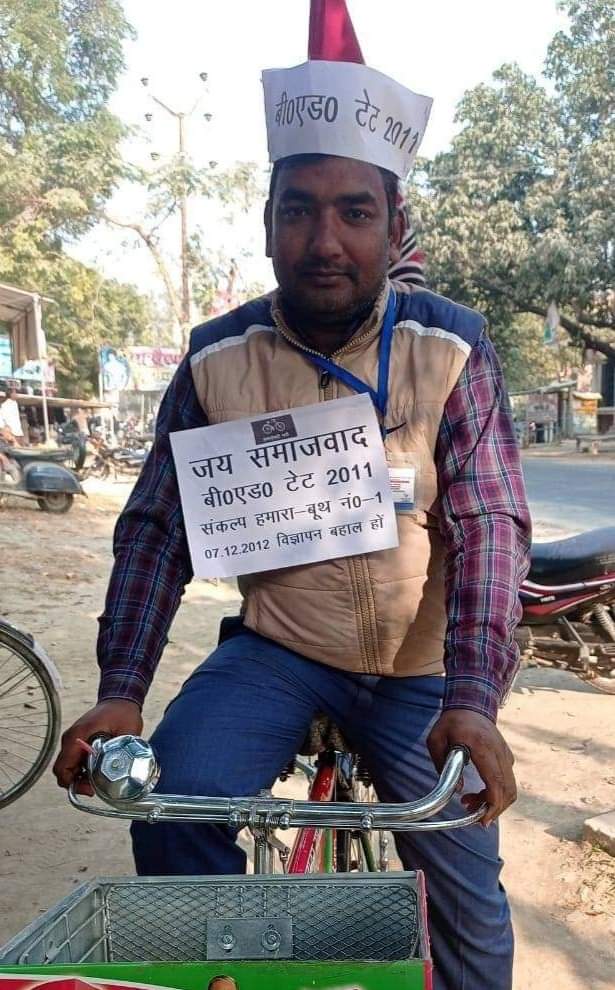 बी0एड0 टेट 2011
जय समाजवाद
बी0एड0 टेट 2011
संकल्प हमारा–बूथ नं0–1
07.12.2012 विज्ञापन बहाल हों